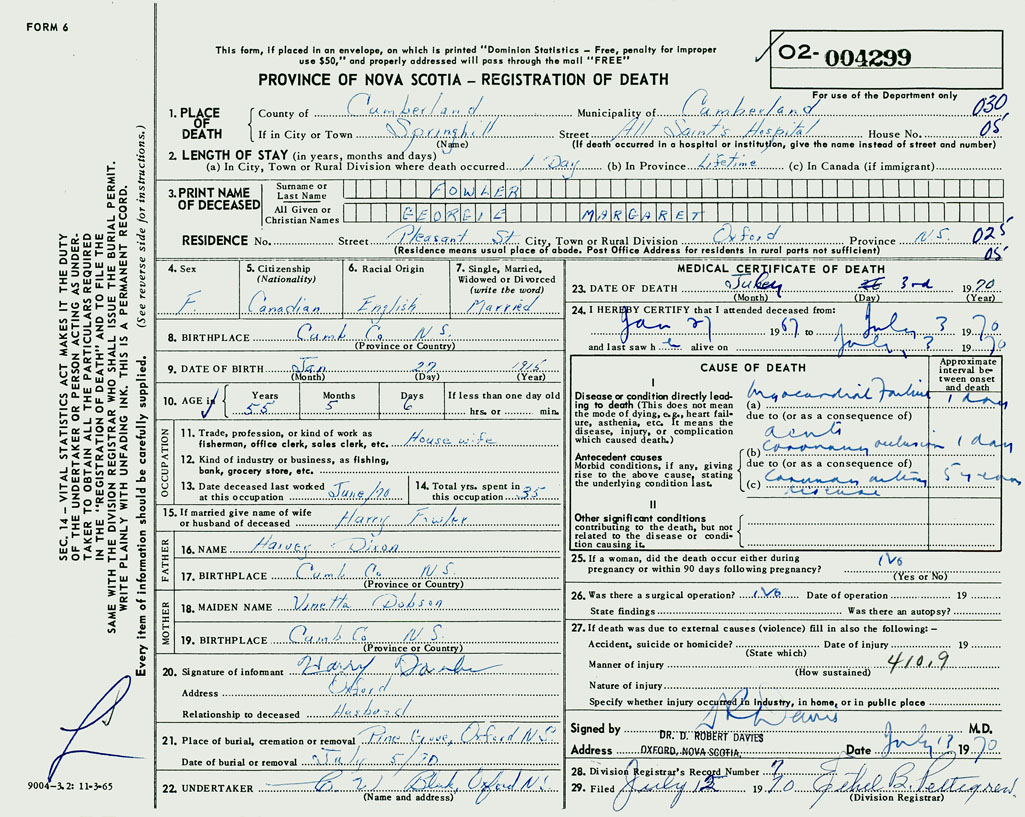 FORM 6
This form, if placed in an envelope, on which is printed "Dominion Statistics – Free, penalty for improper
use $50," and properly addressed will pass through the mail "FREE"
PROVINCE OF NOVA SCOTIA – REGISTRATION OF DEATH
02- 004299
For use of the Department only
030
05
1. PLACE OF DEATH
County of Cumberland Municipality of Cumberland
If in City or Town Springhill Street All Saint's Hospital House No.
(Name) (If death occurred in a hospital or institution, give the name instead of street and number)
2. LENGTH OF STAY (in years, months and days)
(a) In City, Town or Rural Division where death occurred 1 Day (b) In Province Lifetime (c) In Canada (if immigrant)
3. PRINT NAME OF DECEASED
Surname or Last Name FOWLER
All Given or Christian Names GEORGIE MARGARET
RESIDENCE No. Street Pleasant St. City, Town or Rural Division Oxford Province N.S. 025
(Residence means usual place of abode. Post Office Address for residents in rural parts not sufficient) 05
4. Sex F.
5. Citizenship (Nationality) Canadian
6. Racial Origin English
7. Single, Married, Widowed or Divorced (write the word) Married
8. BIRTHPLACE Cumb Co N.S.
(Province or Country)
9. DATE OF BIRTH Jan 27 1915
(Month) (Day) (Year)
10. AGE in Years 55 Months 5 Days 6 If less than one day old hrs. or min.
OCCUPATION
11. Trade, profession, or kind of work as fishermen, office clerk, sales clerk, etc. Housewife
12. Kind of industry or business, as fishing, bank, grocery store, etc.
13. Date deceased last worked at this occupation June/70
14. Total yrs. spent in this occupation 35
15. If married give name of wife or husband of deceased Harry Fowler
FATHER
16. NAME Harvey Dixon
17. BIRTHPLACE Cumb Co N.S.
(Province or Country)
MOTHER
18. MAIDEN NAME Vinetta Dobson
19. BIRTHPLACE Cumb Co N.S.
(Province or Country)
20. Signature of informant Harry
Address Oxford
Relationship to deceased Husbond
21. Place of burial, cremation or removal Pine Grove, Oxford N.S.
Date of burial or removal July 5/70
22. UNDERTAKER Oxford N.S.
(Name and address)
MEDICAL CERTIFICATE OF DEATH
23. DATE OF DEATH July 3rd 1970
(Month) (Day) (Year)
24. I HEREBY CERTIFY that I attended deceased from:
Jan 27 1967 to July 3 1970
and last saw h e alive on July 3 1970
CAUSE OF DEATH
Approximate interval between onset and death
I
Disease or condition directly leading to death (This does not mean the mode of dying, e.g., heart failure, asthenia, etc. It means the disease, injury, or complication which caused death.)
(a) Myocardial Failure 1 day
due to (or as a consequence of)
acute
(b) Coronary occlusion 1 day
Antecedent causes
Morbid conditions, if any, giving rise to the above cause, stating the underlying condition last.
due to (or as a consequence of)
(c) Coronary artery 5 years
disease
II
Other significant conditions contributing to the death, but not related to the disease or condition causing it.
25. If a woman, did the death occur either during pregnancy or within 90 days following pregnancy? No
(Yes or No)
26. Was there a surgical operation? No Date of operation 19
State findings Was there an autopsy?
27. If death was due to external causes (violence) fill in also the following: –
Accident, suicide or homicide? Date of injury 19
(State which)
Manner of injury 410.9
(How sustained)
Nature of injury
Specify whether injury occurred in industry, in home, or in public place
Signed by D R Davies M.D.
DR. D. ROBERT DAVIES
Address OXFORD, NOVA SCOTIA. Date July 1970
28. Division Registrar's Record Number 7
29. Filed July 1970 Ethel B. Pettigrew
(Division Registrar)
SEC. 14 – VITAL STATISTICS ACT MAKES IT THE DUTY
OF THE UNDERTAKER OR PERSON ACTING AS UNDER-
TAKER TO OBTAIN ALL THE PARTICULARS REQUIRED
IN THE "REGISTRATION OF DEATH" AND TO FILE THE
SAME WITH THE DIVISION REGISTRAR WHO SHALL ISSUE THE BURIAL PERMIT.
WRITE PLAINLY WITH UNFADING INK. THIS IS A PERMANENT RECORD.
Every item of information should be carefully supplied. (See reverse side for instructions.)
9004-3.2: 11-3-65